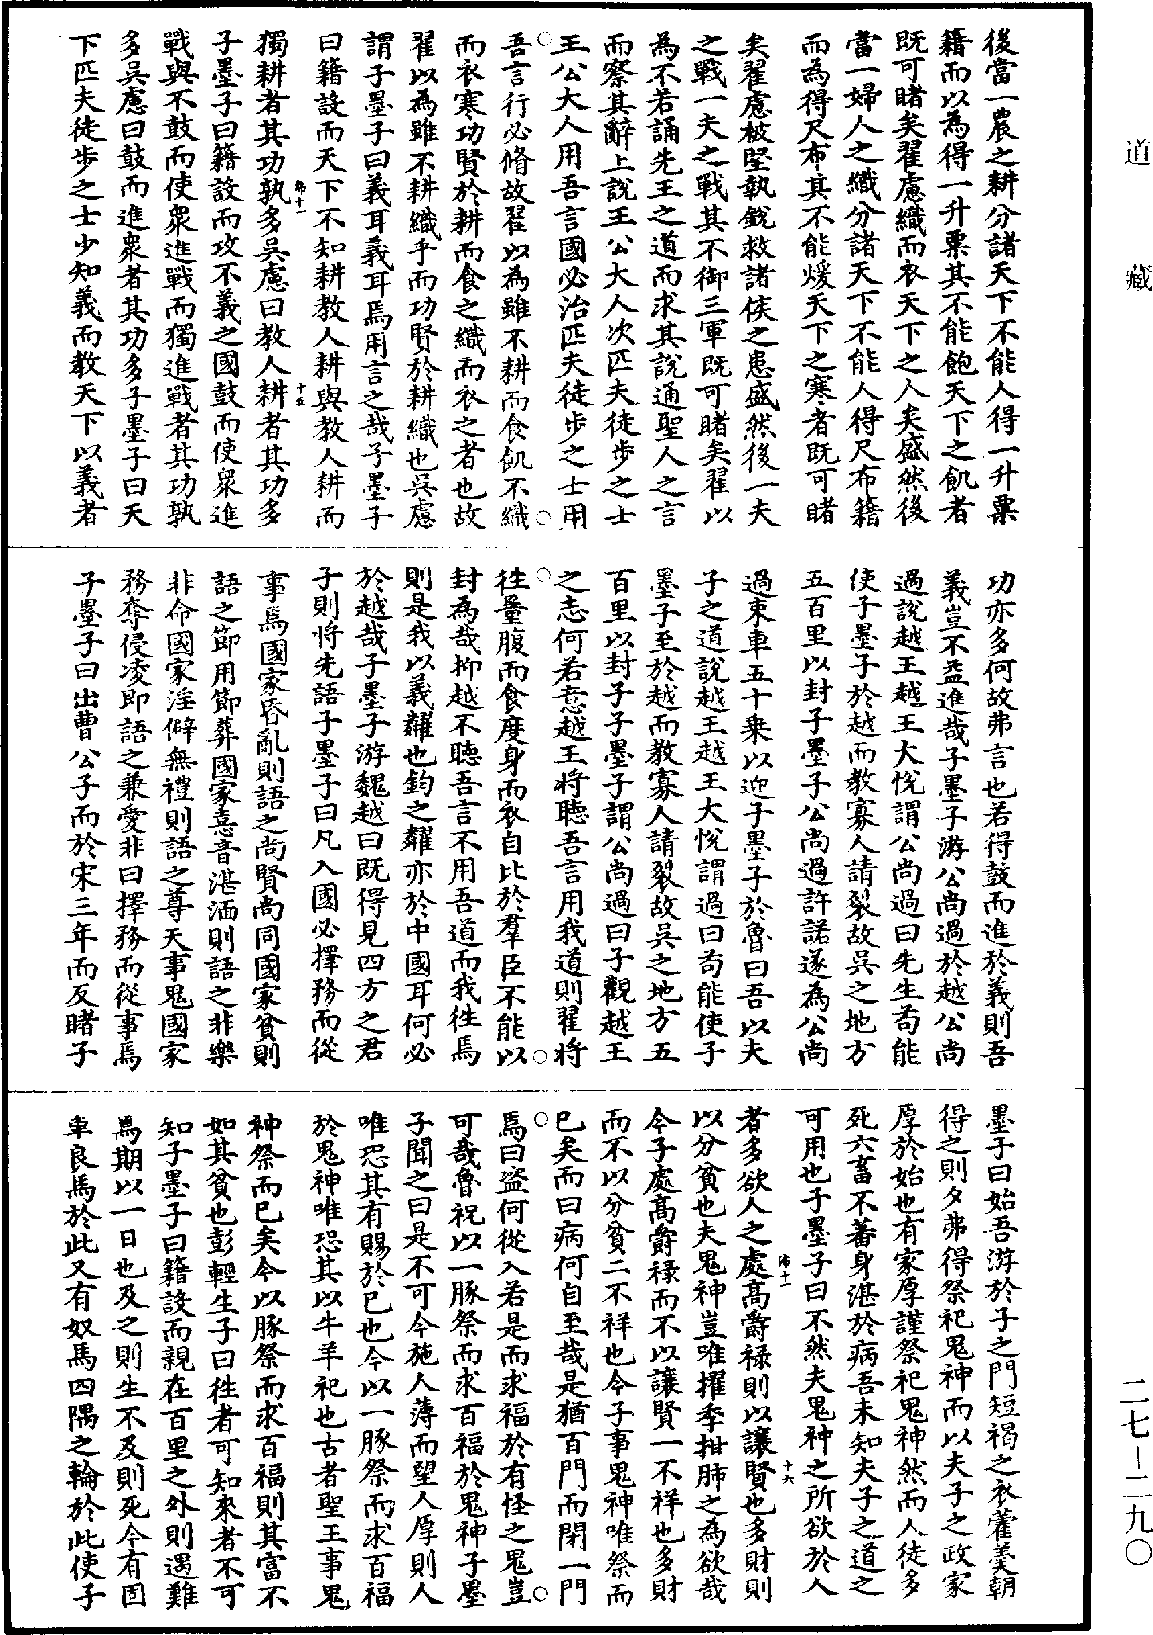 道藏
二七－二九〇
後當一農之耕分諸天下不能人得一升粟
籍而以為得一升粟其不能飽天下之飢者
既可睹矣翟慮織而衣天下之人矣盛然後
當一婦人之織分諸天下不能人得尺布籍
而為得尺布其不能煖天下之寒者既可睹
矣翟慮被堅執銳救諸侯之患盛然後一夫
之戰一夫之戰其不御三軍既可睹矣翟以
為不若誦先王之道而求其說通聖人之言
而察其辭上說王公大人次匹夫徒步之士
王公大人用吾言國必治匹夫徒步之士用
吾言行必脩故翟以為雖不耕而食飢不織
而衣寒功賢於耕而食之織而衣之者也故
翟以為雖不耕織乎而功賢於耕織也吳慮
謂子墨子曰義耳義耳焉用言之哉子墨子
曰籍設而天下不知耕教人耕與教人耕而
獨耕者其功孰多吳慮曰教人耕者其功多
子墨子曰籍設而攻不義之國鼓而使眾進
戰與不鼓而使眾進戰而獨進戰者其功孰
多吳慮曰鼓而進眾者其功多子墨子曰天
下匹夫徒步之士少知義而教天下以義者
功亦多何故弗言也若得鼓而進於義則吾
義豈不益進哉子墨子游公尚過於越公尚
過說越王越王大悅謂公尚過曰先生苟能
使子墨子於越而教寡人請裂故吳之地方
五百里以封子墨子公尚過許諾遂為公尚
過束車五十乘以迎子墨子於魯曰吾以夫
子之道說越王越王大悅謂過曰苟能使子
墨子至於越而教寡人請裂故吳之地方五
百里以封子子墨子謂公尚過曰子觀越王
之志何若意越王將聽吾言用我道則翟將
往量腹而食度身而衣自比於羣臣不能以
封為哉抑越不聽吾言不用吾道而我往焉
則是我以義糶也鈞之糶亦於中國耳何必
於越哉子墨子游魏越曰既得見四方之君
子則將先語子墨子曰凡入國必擇務而從
事焉國家昏亂則語之尚賢尚同國家貧則
語之節用節葬國家憙音湛湎則語之非樂
非命國家淫僻無禮則語之尊天事鬼國家
務奪侵凌即語之兼愛非曰擇務而從事焉
子墨子曰出曹公子而於宋三年而反睹子
墨子曰始吾游於子之門短褐之衣藿羹朝
得之則夕弗得祭祀鬼神而以夫子之政家
厚於始也有家厚謹祭祀鬼神然而人徒多
死六畜不蕃身湛於病吾未知夫子之道之
可用也子墨子曰不然夫鬼神之所欲於人
者多欲人之處高爵祿則以讓賢也多財則
以分貧也夫鬼神豈唯擢季拑肺之為欲哉
今子處高爵祿而不以讓賢一不祥也多財
而不以分貧二不祥也今子事鬼神唯祭而
已矣而曰病何自至哉是猶百門而閉一門
焉曰盜何從入若是而求福於有怪之鬼豈
可哉魯祝以一豚祭而求百福於鬼神子墨
子聞之曰是不可今施人薄而望人厚則人
唯恐其有賜於己也今以一豚祭而求百福
於鬼神唯恐其以牛羊祀也古者聖王事鬼
神祭而已矣今以豚祭而求百福則其富不
如其貧也彭輕生子曰往者可知來者不可
知子墨子曰籍設而親在百里之外則遇難
焉期以一日也及之則生不及則死今有固
車良馬於此又有奴馬四隅之輪於此使子